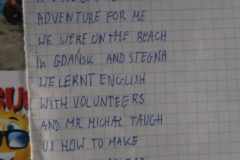 ADVENTURE FOR ME
WE WERE ON THE BEACH
IN GDAŃSK AND STEGNA
WE LERNT ENGLISH
WITH VOLUNTEERS
AND MR MICHAŁ TAUGH
US HOW TO MAKE